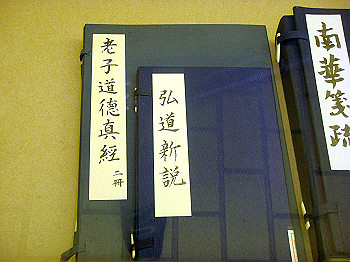 老子道德真經 二冊
弘道新説
南華箋疏